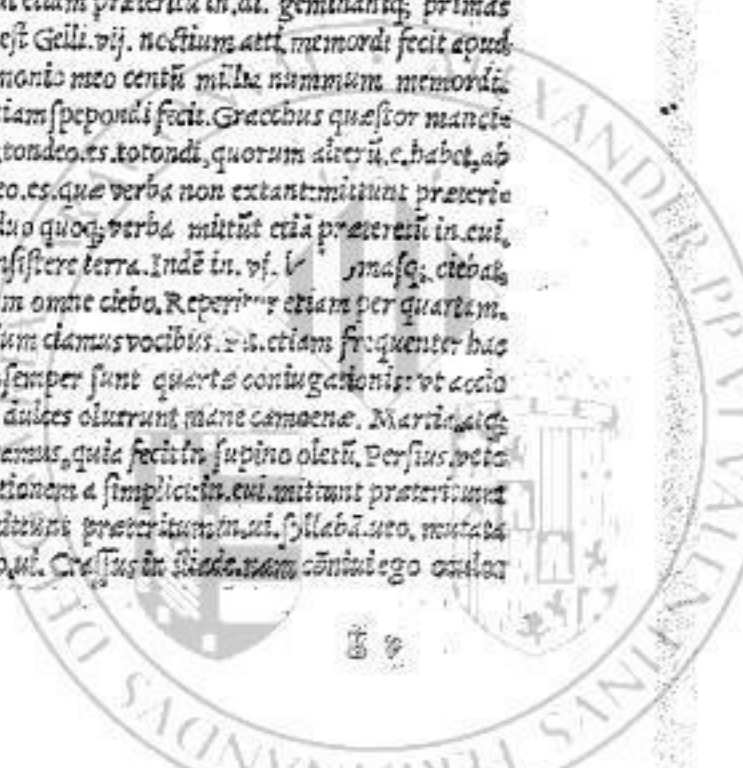 ut etiam præteritũ in.di. geminantq; primas
est Gelli.vij. noctium atti. memordi fecit apud
monio meo centũ millia nummum memordi.
etiam spepondi fecit. Gracchus quæstor manci=
tondeo.es.totondi, quorum alterũ.e.habet, ab
eo.es.quæ verba non extant: mittunt præteri=
duo quoq; verba mittũt etiã præteritũ in.cui.
nsistere terra. Indẽ in. vj. masq; ciebat.
m omne ciebo. Reperitur etiam per quartam.
ium ciamus vocibus. etiam frequenter hac
semper sunt quartæ coniugationis: vt accio
dulces oluerunt mane camoenæ. Martia.
amus, quia fecit in supino oletũ. Persius. veto
tionem a simplici: in.eui.mittunt præteritum:
mittunt præteritum in.ui. syllabã.ueo. mutata
o.ui. Crassus in iliade. nam cõniui ego
XANDER PP VI VALENTINUS FERDINANDUS